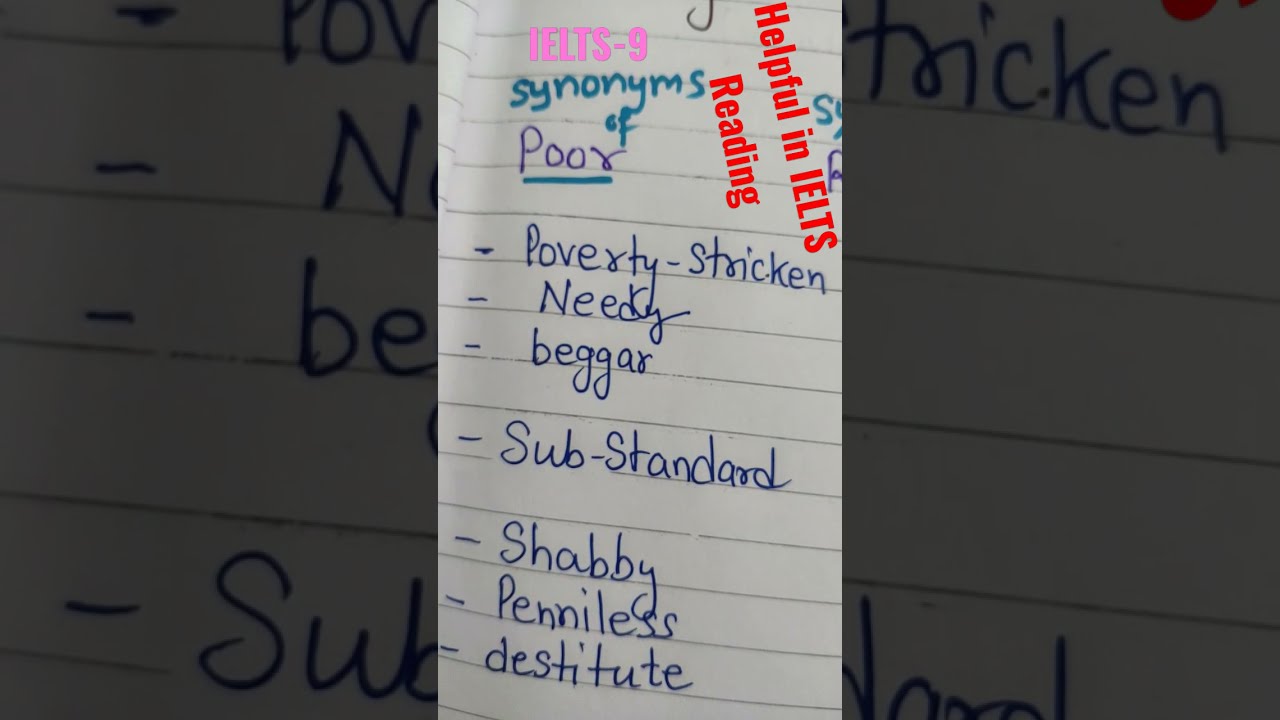 IELTS-9
Helpful in IELTS
Reading
synonyms
of
Poor
- Poverty-Stricken
- Needy
- beggar
- Sub-Standard
- Shabby
- Penniless
- destitute